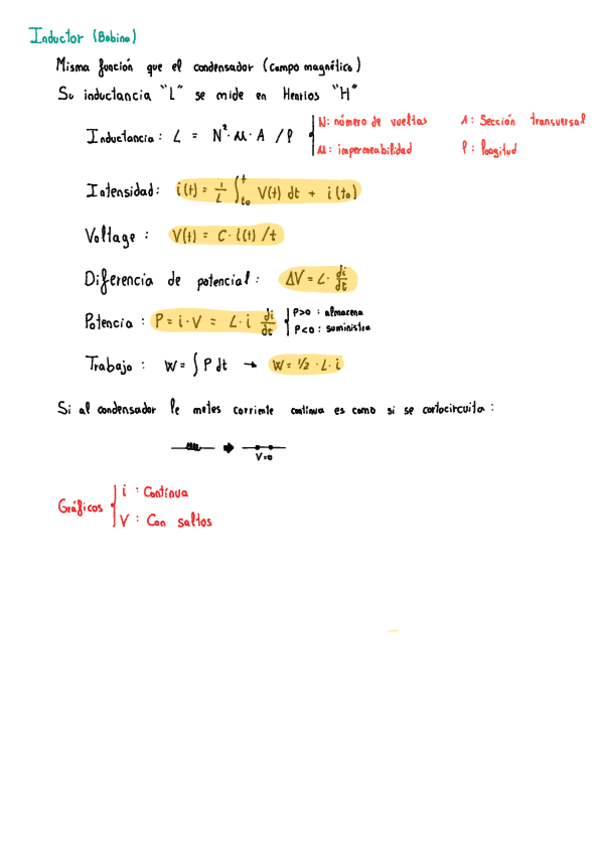 Inductor (Bobina)
Misma función que el condensador (Campo magnético)
Su inductancia "L" se mide en Henrios "H"
Inductancia: L = N²·μ·A / l
N: número de vueltas A: Sección transversal
μ: impermeabilidad l: longitud
Intensidad: i(t) = 1/L ∫_{t₀}^{t} V(t) dt + i(t₀)
Voltage: V(t) = C·i(t)/t
Diferencia de potencial: ΔV = L· di/dt
Potencia: P = i·V = L·i di/dt
P>0: almacena
P<0: suministra
Trabajo: W = ∫ P dt → W = 1/2 · L · i
Si al condensador le metes corriente continua es como si se cortocircuita:
V=0
Gráficos
i: Continua
V: Con saltos